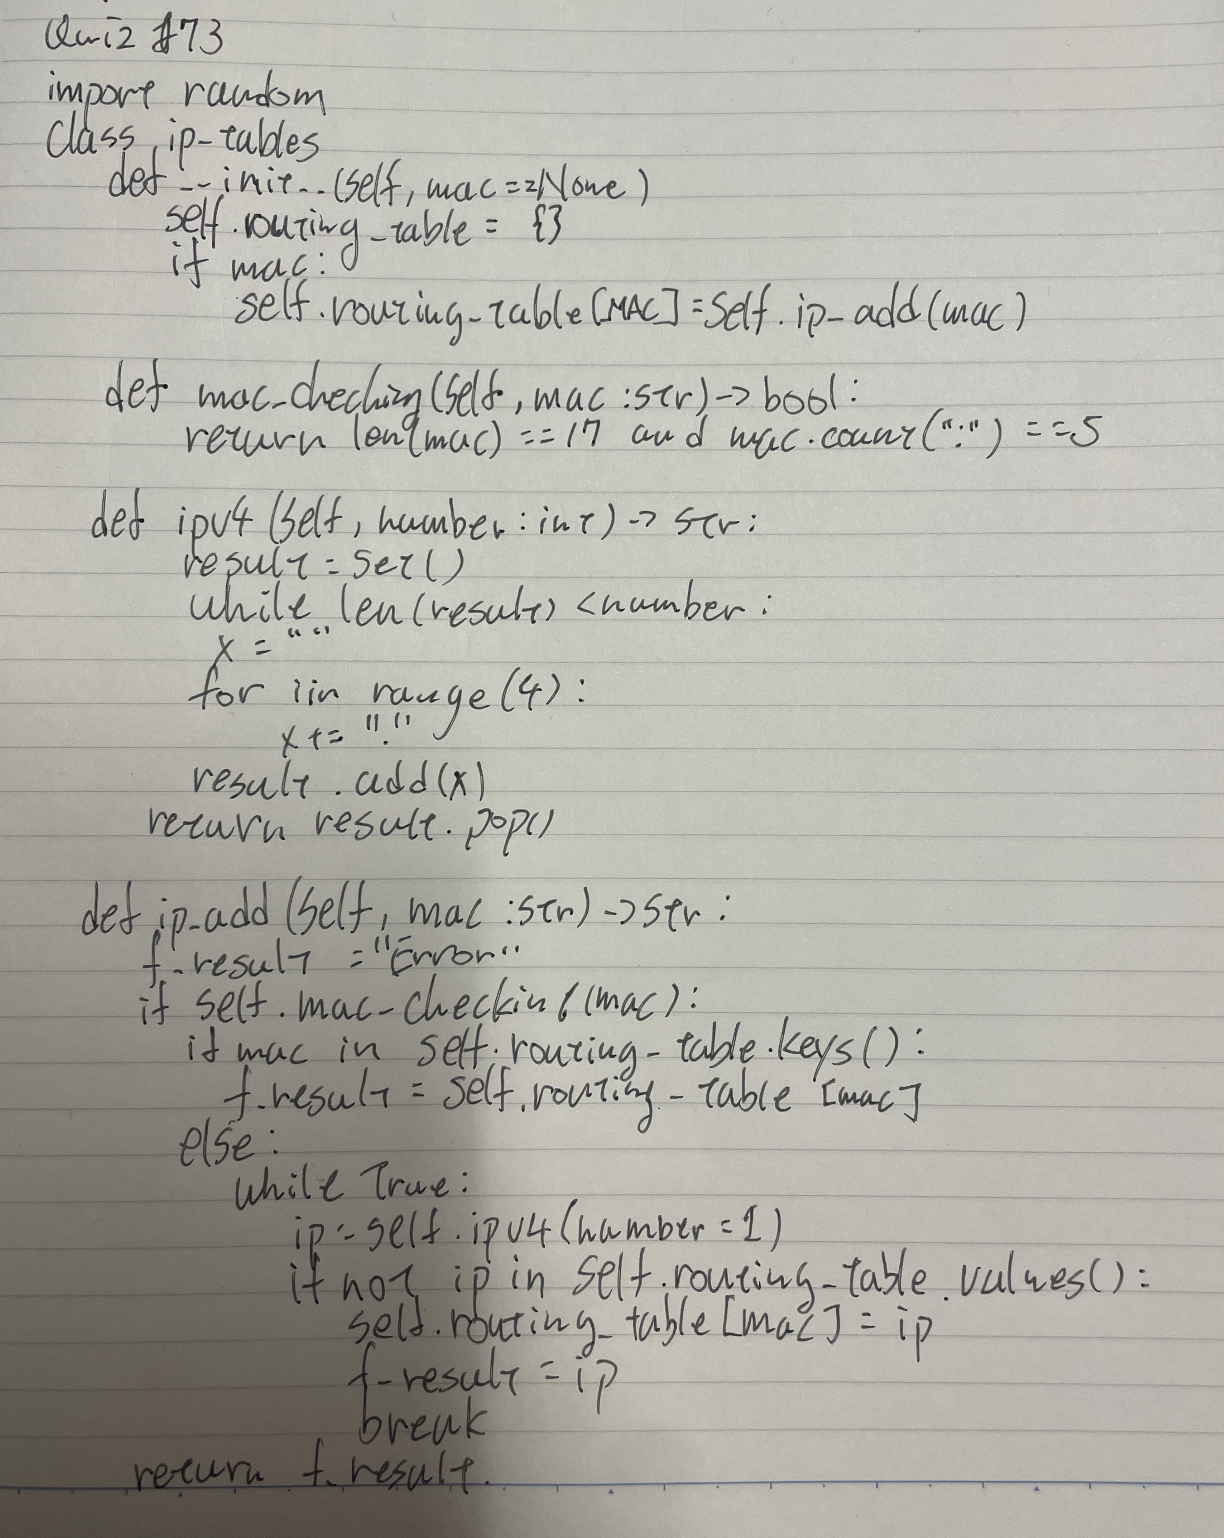 Quiz #73
import random
class ip-tables
def __init__(self, mac==None)
self.routing_table = {}
if mac:
self.routing_table[MAC]=self.ip_add(mac)
def mac_checking(self, mac:str)->bool:
return len(mac)==17 and mac.count(":")==5
def ipv4(self, number:int)->str:
result=set()
while len(result)<number:
x=""
for i in range(4):
x+="."
result.add(x)
return result.pop()
def ip_add(self, mac:str)->str:
f_result="Error"
if self.mac_checking(mac):
if mac in self.routing_table.keys():
f_result=self.routing_table[mac]
else:
while True:
ip=self.ipv4(number=1)
if not ip in self.routing_table.values():
self.routing_table[mac]=ip
f_result=ip
break
return f_result.